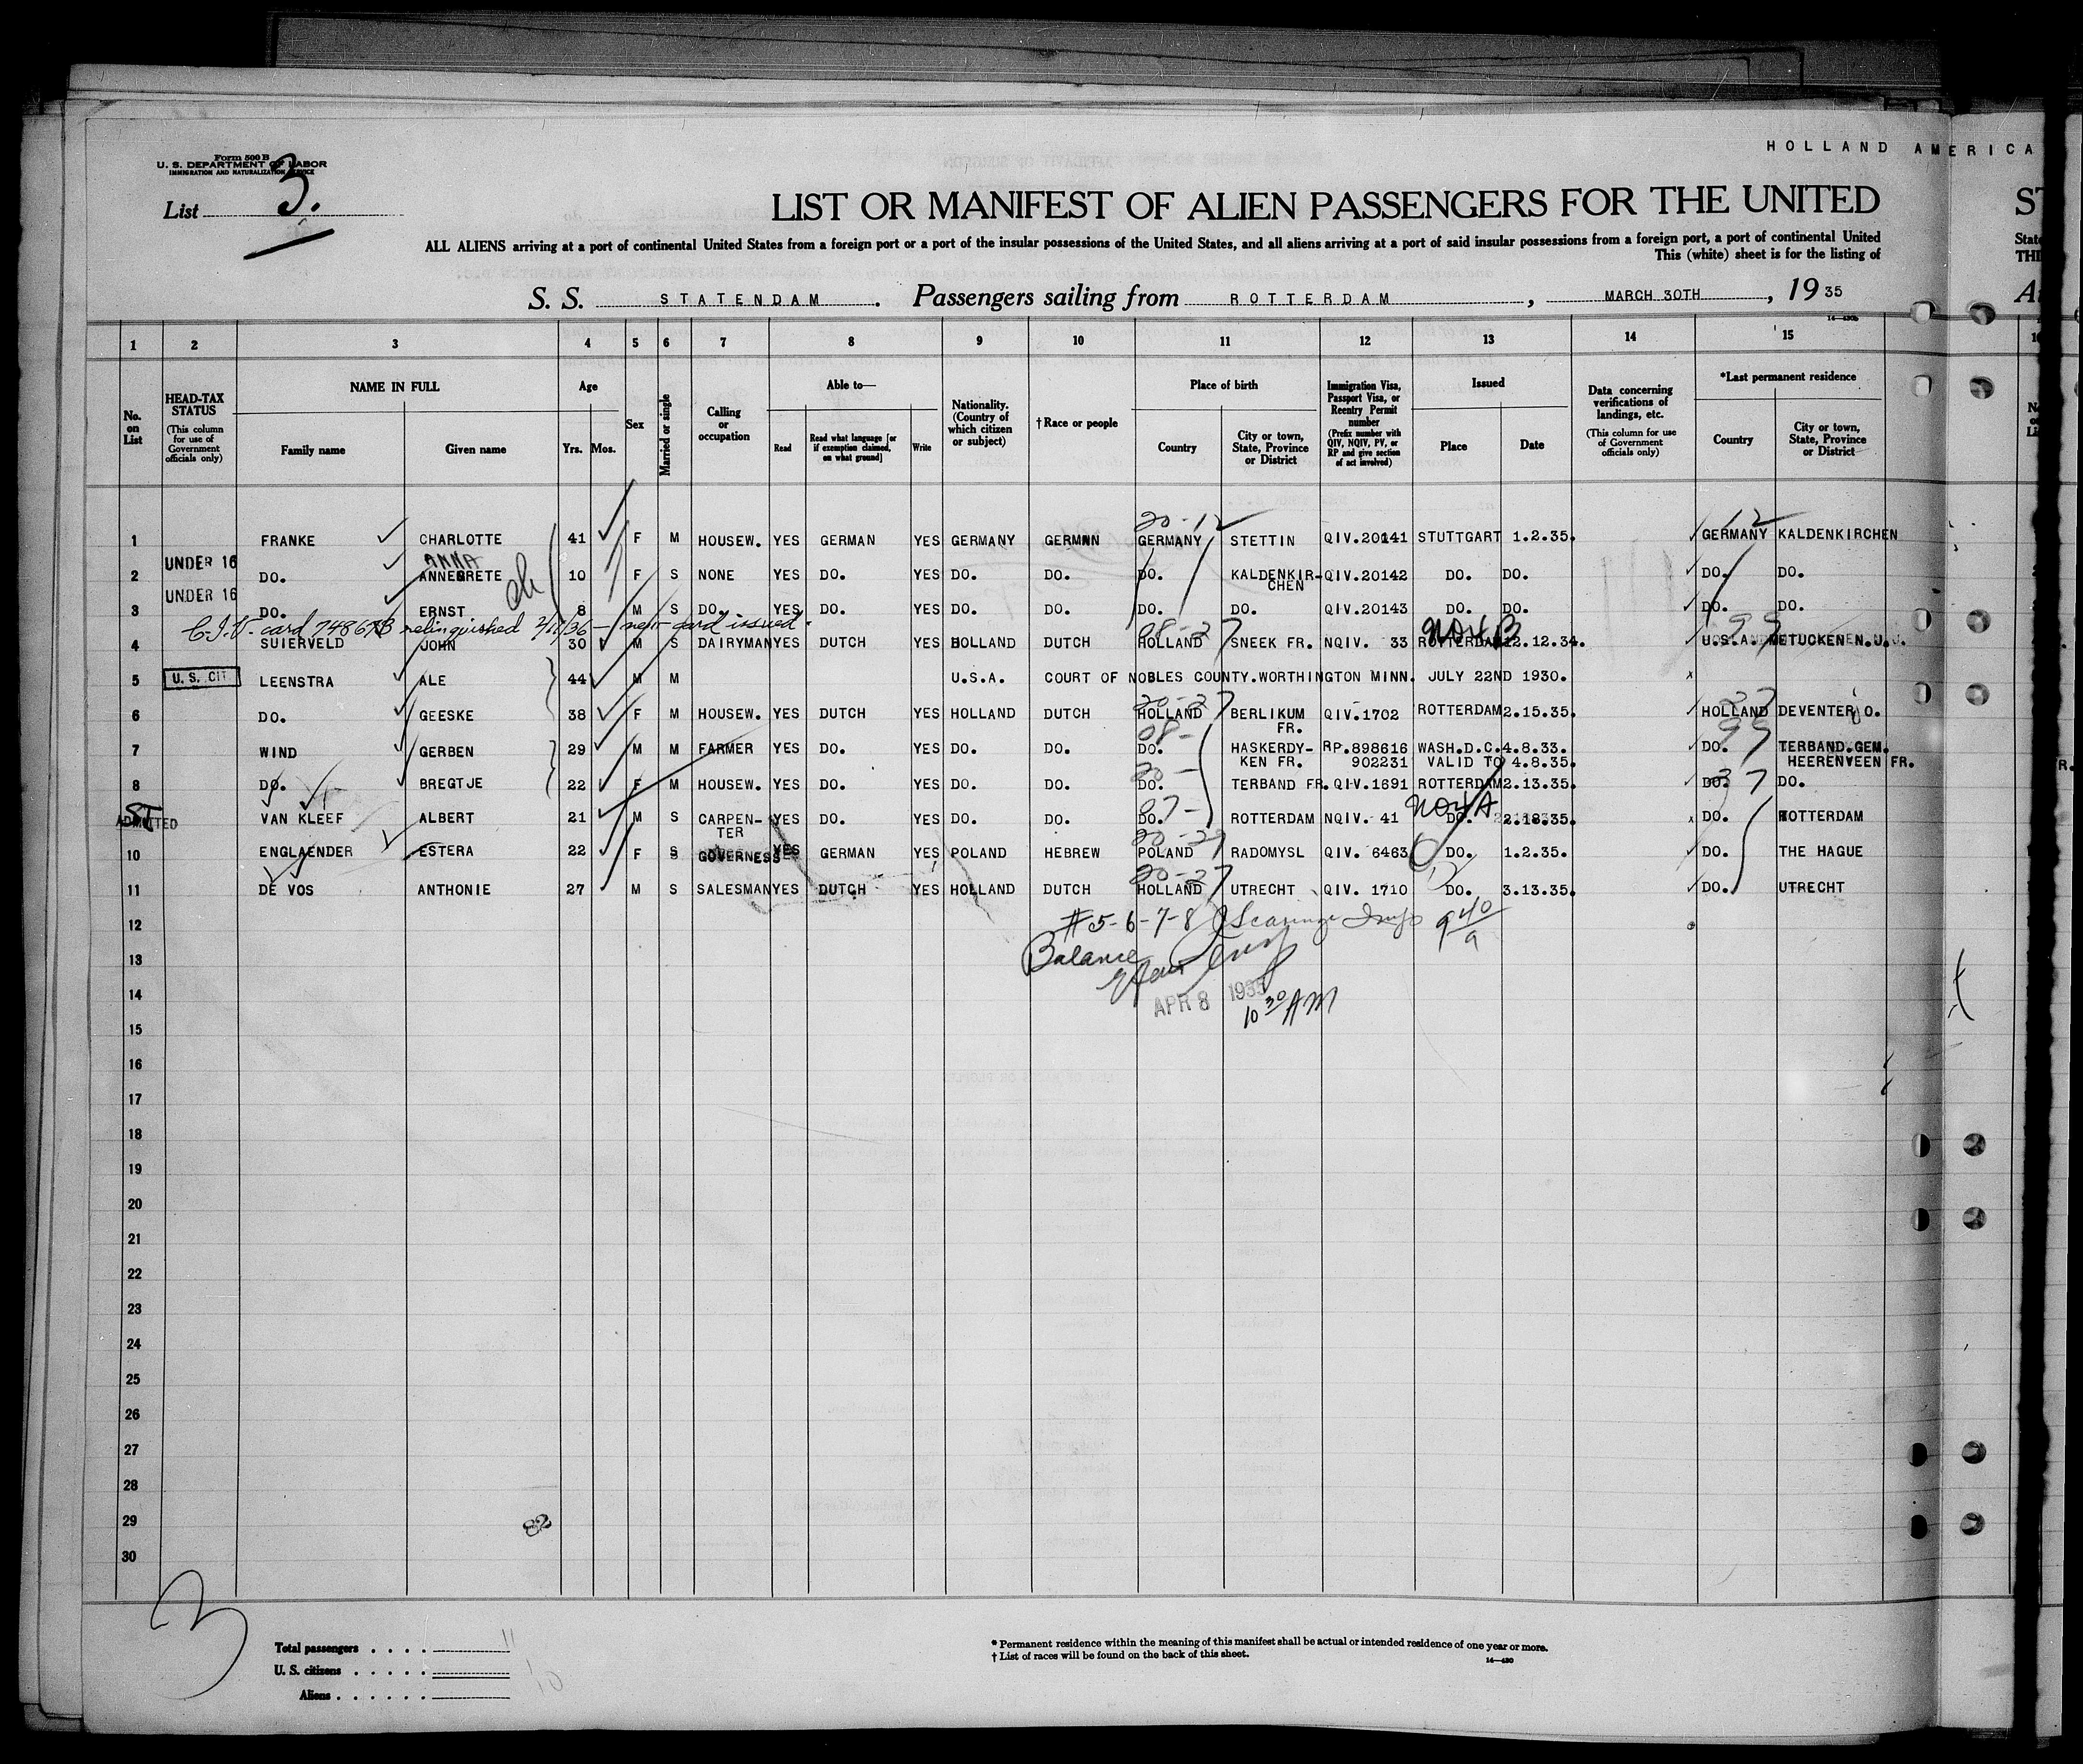 HOLLAND AMERICA
Form 500 B
U. S. DEPARTMENT OF LABOR
IMMIGRATION AND NATURALIZATION SERVICE
List 3.
LIST OR MANIFEST OF ALIEN PASSENGERS FOR THE UNITED
ALL ALIENS arriving at a port of continental United States from a foreign port or a port of the insular possessions of the United States, and all aliens arriving at a port of said insular possessions from a foreign port, a port of continental United
This (white) sheet is for the listing of
S. S. STATENDAM . Passengers sailing from ROTTERDAM , MARCH 30TH , 19 35
1 2 3 4 5 6 7 8 9 10 11 12 13 14 15
No. on List
HEAD-TAX STATUS (This column for use of Government officials only)
NAME IN FULL Family name Given name
Age Yrs. Mos.
Sex
Married or single
Calling or occupation
Able to— Read Read what language [or if exemption claimed, on what ground] Write
Nationality. (Country of which citizen or subject)
† Race or people
Place of birth Country City or town, State, Province or District
Immigration Visa, Passport Visa, or Reentry Permit number (Prefix number with QIV, NQIV, PV, or RP and give section of act involved)
Issued Place Date
Data concerning verifications of landings, etc. (This column for use of Government officials only)
*Last permanent residence Country City or town, State, Province or District
20-12 12
1 FRANKE CHARLOTTE 41 F M HOUSEW. YES GERMAN YES GERMANY GERMNN GERMANY STETTIN QIV.20141 STUTTGART 1.2.35. GERMANY KALDENKIRCHEN
UNDER 16 ANNA
2 DO. ANNEGRETE 10 F S NONE YES DO. YES DO. DO. DO. KALDENKIR-CHEN QIV.20142 DO. DO. DO. DO.
UNDER 16
3 DO. ERNST 8 M S DO. YES DO. YES DO. DO. DO. DO. QIV.20143 DO. DO. DO. DO.
relinquished 2/11/36 — new card issued.
4 SUIERVELD JOHN 30 M S DAIRYMAN YES DUTCH YES HOLLAND DUTCH HOLLAND SNEEK FR. NQIV. 33 ROTTERDAM 12.12.34. U.S.A. METUCKEN N.J.
5 U. S. CIT. LEENSTRA ALE 44 M M U.S.A. COURT OF NOBLES COUNTY.WORTHINGTON MINN. JULY 22ND 1930.
6 DO. GEESKE 38 F M HOUSEW. YES DUTCH YES HOLLAND DUTCH HOLLAND BERLIKUM FR. QIV.1702 ROTTERDAM 2.15.35. HOLLAND DEVENTER O.
7 WIND GERBEN 29 M M FARMER YES DO. YES DO. DO. DO. HASKERDY-KEN FR. RP.898616 902231 WASH.D.C. 4.8.33. VALID TO 4.8.35. DO. TERBAND.GEM. HEERENVEEN FR.
8 DO. BREGTJE 22 F M HOUSEW. YES DO. YES DO. DO. DO. TERBAND FR. QIV.1691 ROTTERDAM 2.13.35. DO. DO.
ADMITTED VAN KLEEF ALBERT 21 M S CARPEN-TER YES DO. YES DO. DO. DO. ROTTERDAM NQIV. 41 DO. 2.18.35. DO. ROTTERDAM
10 ENGLAENDER ESTERA 22 F S GOVERNESS YES GERMAN YES POLAND HEBREW POLAND RADOMYSL QIV. 6463 DO. 1.2.35. DO. THE HAGUE
11 DE VOS ANTHONIE 27 M S SALESMAN YES DUTCH YES HOLLAND DUTCH HOLLAND UTRECHT QIV. 1710 DO. 3.13.35. DO. UTRECHT
12 #5-6-7-8
13 Balance
14 APR 8 1935 10 30 AM
15
16
17
18
19
20
21
22
23
24
25
26
27
28
29
30
82
3
Total passengers . . . . 11
U. S. citizens . . . . .
Aliens . . . . . .
* Permanent residence within the meaning of this manifest shall be actual or intended residence of one year or more.
† List of races will be found on the back of this sheet.
14—430